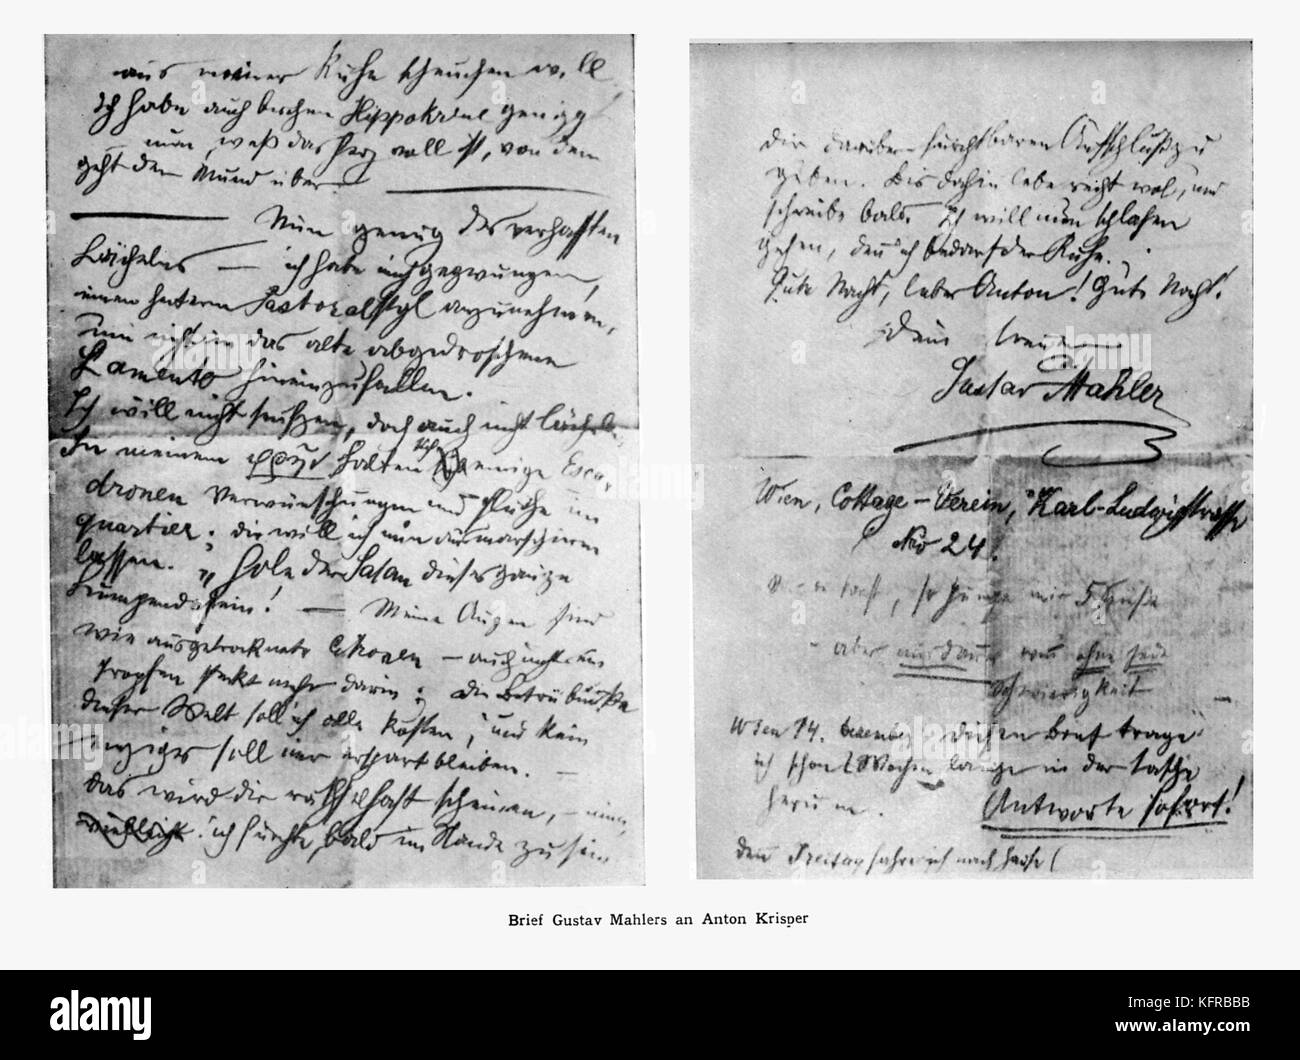 aus meiner Ruhe scheuchen will
Ich habe auch bischen Hippokrene genippt
nun, weß das Herz voll ist, von dem
geht der Mund über
Nun genug des verhaßten
Lächelns — ich habe mich gezwungen,
einen heitern Pastoralstyl anzunehmen,
um nicht in das alte abgedroschene
Lamento hineinzufallen.
Ich will nicht seufzen, doch auch nicht lächeln.
In meinem halten sich einige Esca-
dronen Verwünschungen und Flüche im
quartier; die will ich nun ausmarschieren
lassen. „Hole der Satan dieses ganze
Lumpendasein! — Meine Augen sind
wie ausgetrocknete Citronen — auch nicht ein
Tropfen steckt mehr darin; die Betrübnisse
dieser Welt soll ich alle kosten, und kein
einziges soll mir erspart bleiben. —
Das wird dir räthselhaft scheinen, —
ich fürchte, bald im Stande zu sein
dir darüber furchtbaren Aufschluß zu
geben. Bis dahin lebe recht wol, und
schreibe bald. Ich will nun schlafen
gehen, denn ich bedarf der Ruhe.
Gute Nacht, lieber Anton! Gute Nacht.
Dein treuer
Gustav Mahler
Wien, Cottage-Verein, Karl-Ludwigstrasse
Nro 24.
aber ohne jede
Schwierigkeit
Wien 14. Dezember. Diesen Brief trage
ich schon 2 Wochen lange in der Tasche
herum. Antworte sofort!
denn Freitag fahre ich nach Hause!
Brief Gustav Mahlers an Anton Krisper
alamy
Image ID: KFRBBB
www.alamy.com